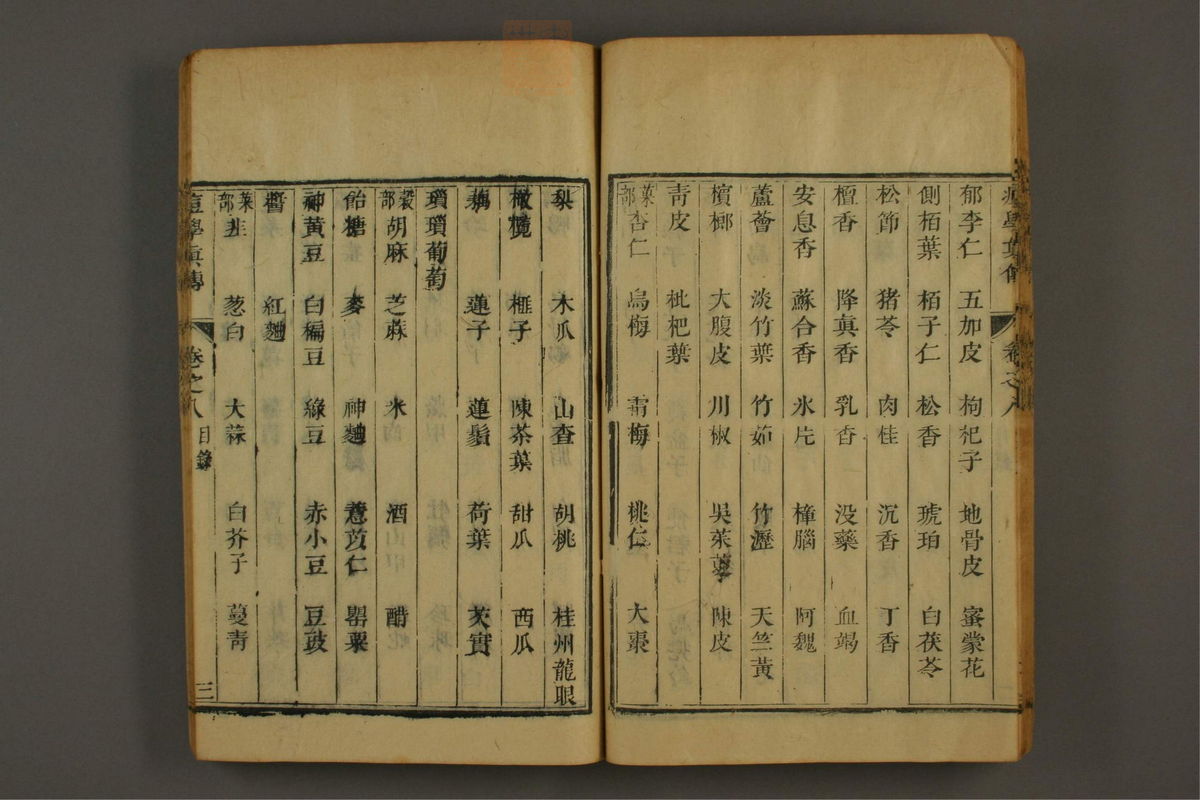 痘學真傳 卷之八
郁李仁 五加皮 枸杞子 地骨皮 蜜蒙花
側栢葉 栢子仁 松香 琥珀 白茯苓
松節 猪苓 肉桂 沉香 丁香
檀香 降眞香 乳香 没藥 血竭
安息香 蘇合香 氷片 樟腦 阿魏
蘆薈 淡竹葉 竹茹 竹瀝 天竺黃
檳榔 大腹皮 川椒 吳茱萸 陳皮
靑皮 枇杷葉
菓部 杏仁 烏梅 靑梅 桃仁 大棗
梨 木瓜 山查 胡桃 桂州龍眼
橄欖 榧子 陳茶葉 甜瓜 西瓜
藕 蓮子 蓮鬚 荷葉 芡實
瑣瑣葡萄
穀部 胡麻 芝蔴 米 酒 醋
飴糖 麥 神麯 薏苡仁 罌粟
神黃豆 白稨豆 綠豆 赤小豆 豆豉
醬 紅麯
菜部 韭 葱白 大蒜 白芥子 蔓靑
痘學眞傳 卷之八 目錄 三